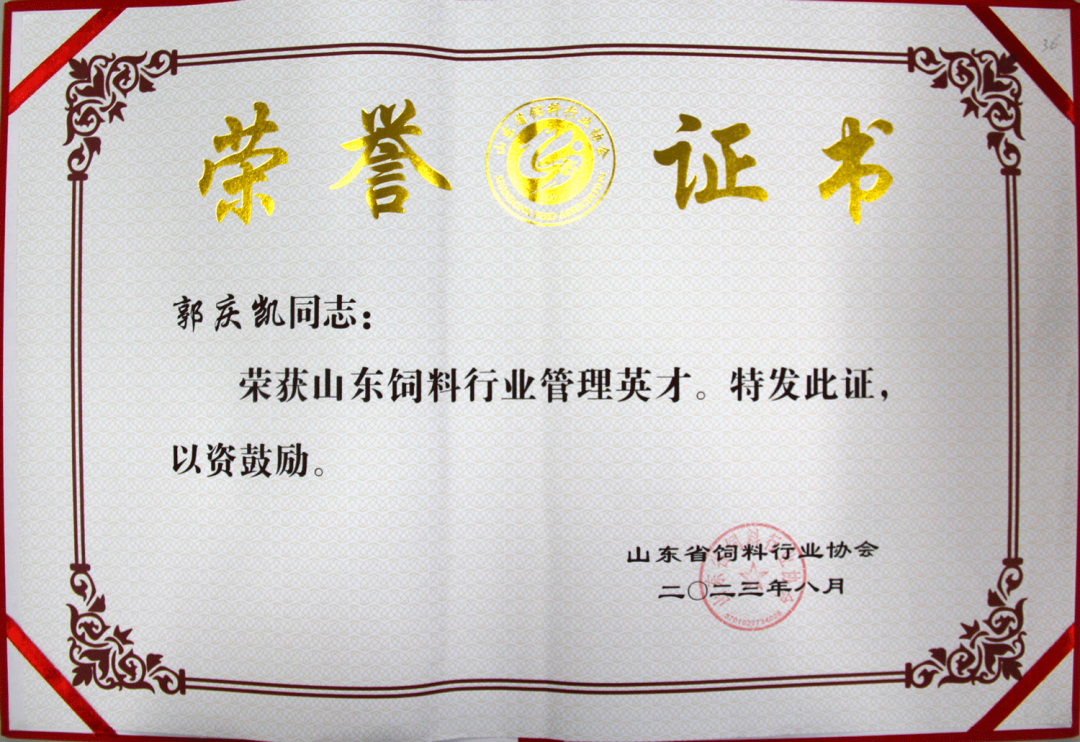 36
荣誉证书
山东省饲料行业协会
郭庆凯同志：
荣获山东饲料行业管理英才。特发此证，
以资鼓励。
山东省饲料行业协会
二〇二三年八月
山东省饲料行业协会